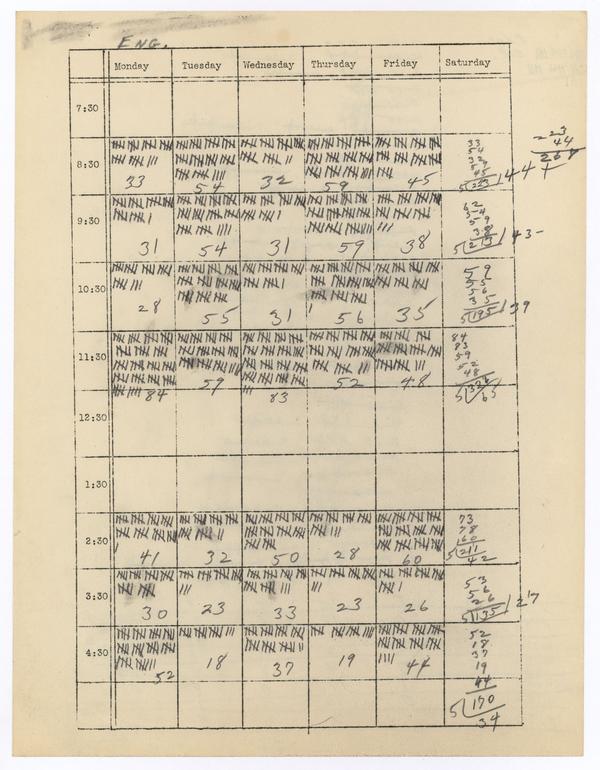 ENG.
Monday Tuesday Wednesday Thursday Friday Saturday
7:30
8:30 33 54 32 59 45
33
54
32
59
45
5 223 44
223
44
267
9:30 31 54 31 59 38
62
54
59
38
5 213 43-
10:30 28 55 31 56 35
59
55
56
35
5 195 39
11:30 84 59 83 52 48
84
83
59
52
48
5 326
65
12:30
1:30
2:30 41 32 50 28 60
73
78
160
5 211
42
3:30 30 23 33 23 26
53
56
26
5 135 27
4:30 52 18 37 19 44
52
18
37
19
44
5 170
34